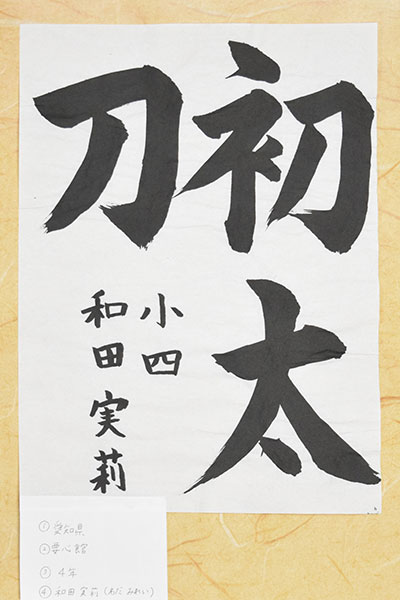 初太
刀
小四
和田実莉
① 愛知県
②
③ 4年
④ 和田 実莉(わだ みれい)